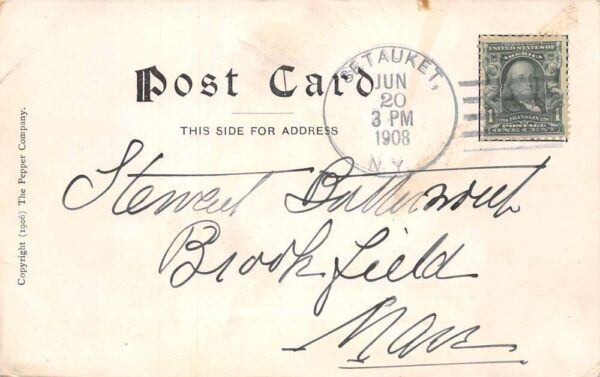 Post Card
THIS SIDE FOR ADDRESS
SETAUKET,
JUN
20
3 PM
1908
N.Y.
UNITED STATES OF
AMERICA
1
FRANKLIN
1
POSTAGE
ONE CENT
Copyright (1906) The Pepper Company.
Stewart Butterworth
Brookfield
Mass